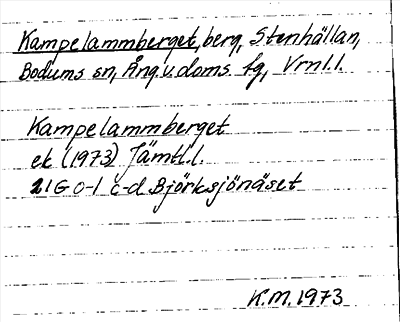 Kampelammberget, berg, Stenhällan,
Bodums sn, Ång.v.doms fg, Vrnl.l.
Kampelammberget
ek (1973) Jämtl.l.
21G 0-1 c-d Björksjönäset
K.M. 1973